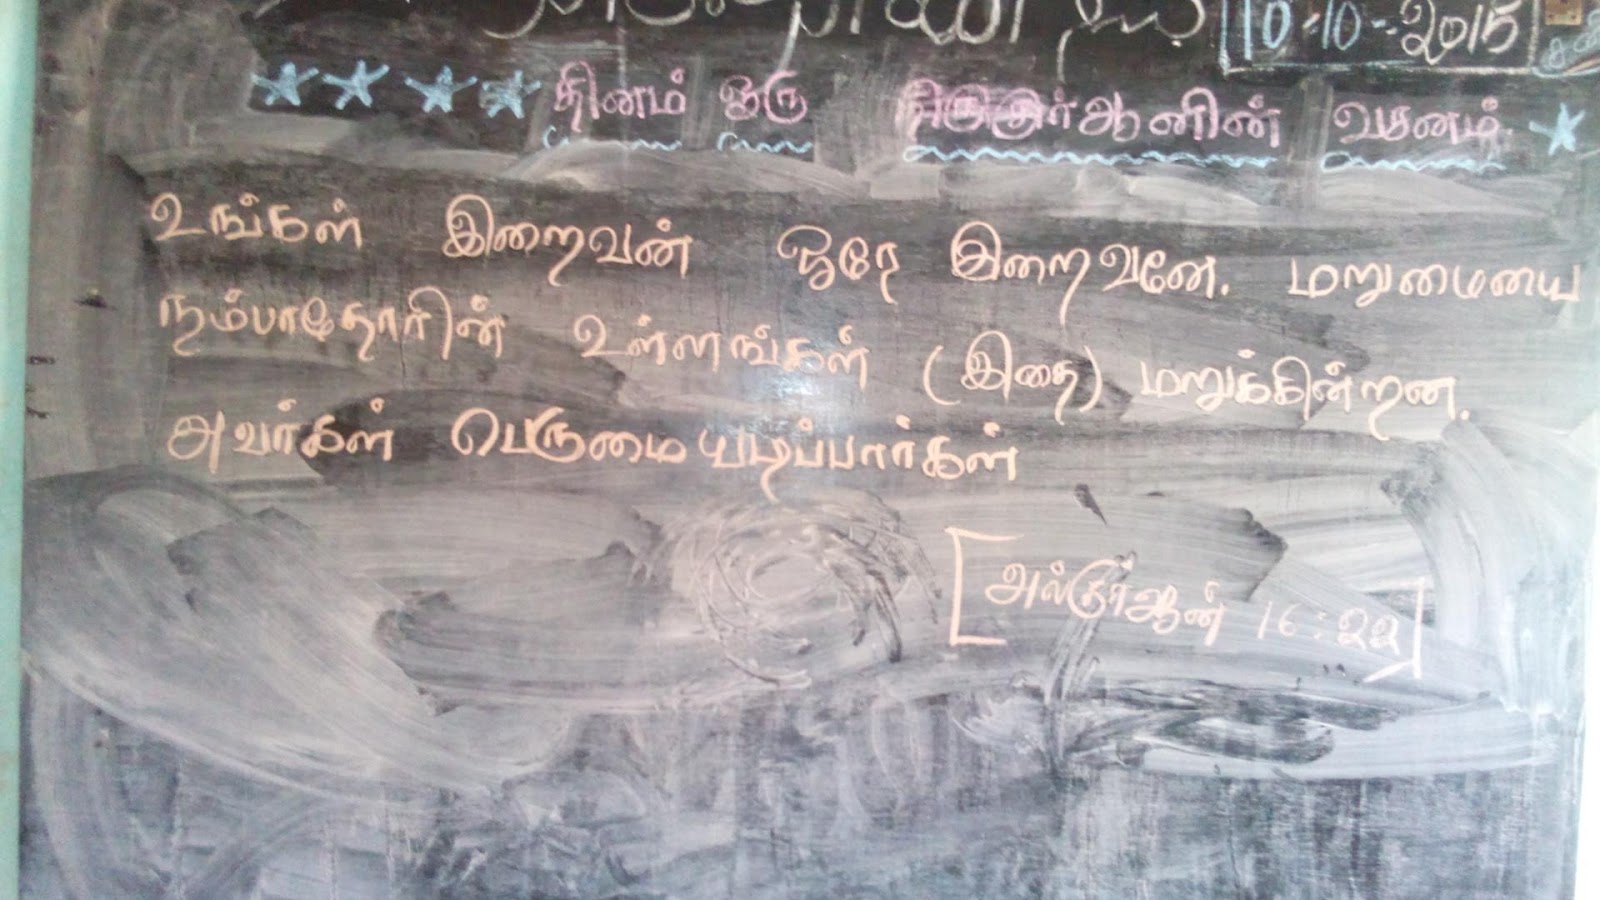 10-10-2015
தினம் ஒரு திருகுர்ஆனின் வசனம்
உங்கள் இறைவன் ஒரே இறைவனே. மறுமையை
நம்பாதோரின் உள்ளங்கள் (இதை) மறுக்கின்றன.
அவர்கள் பெருமையடிப்பார்கள்
[அல்குர்ஆன் 16:22]